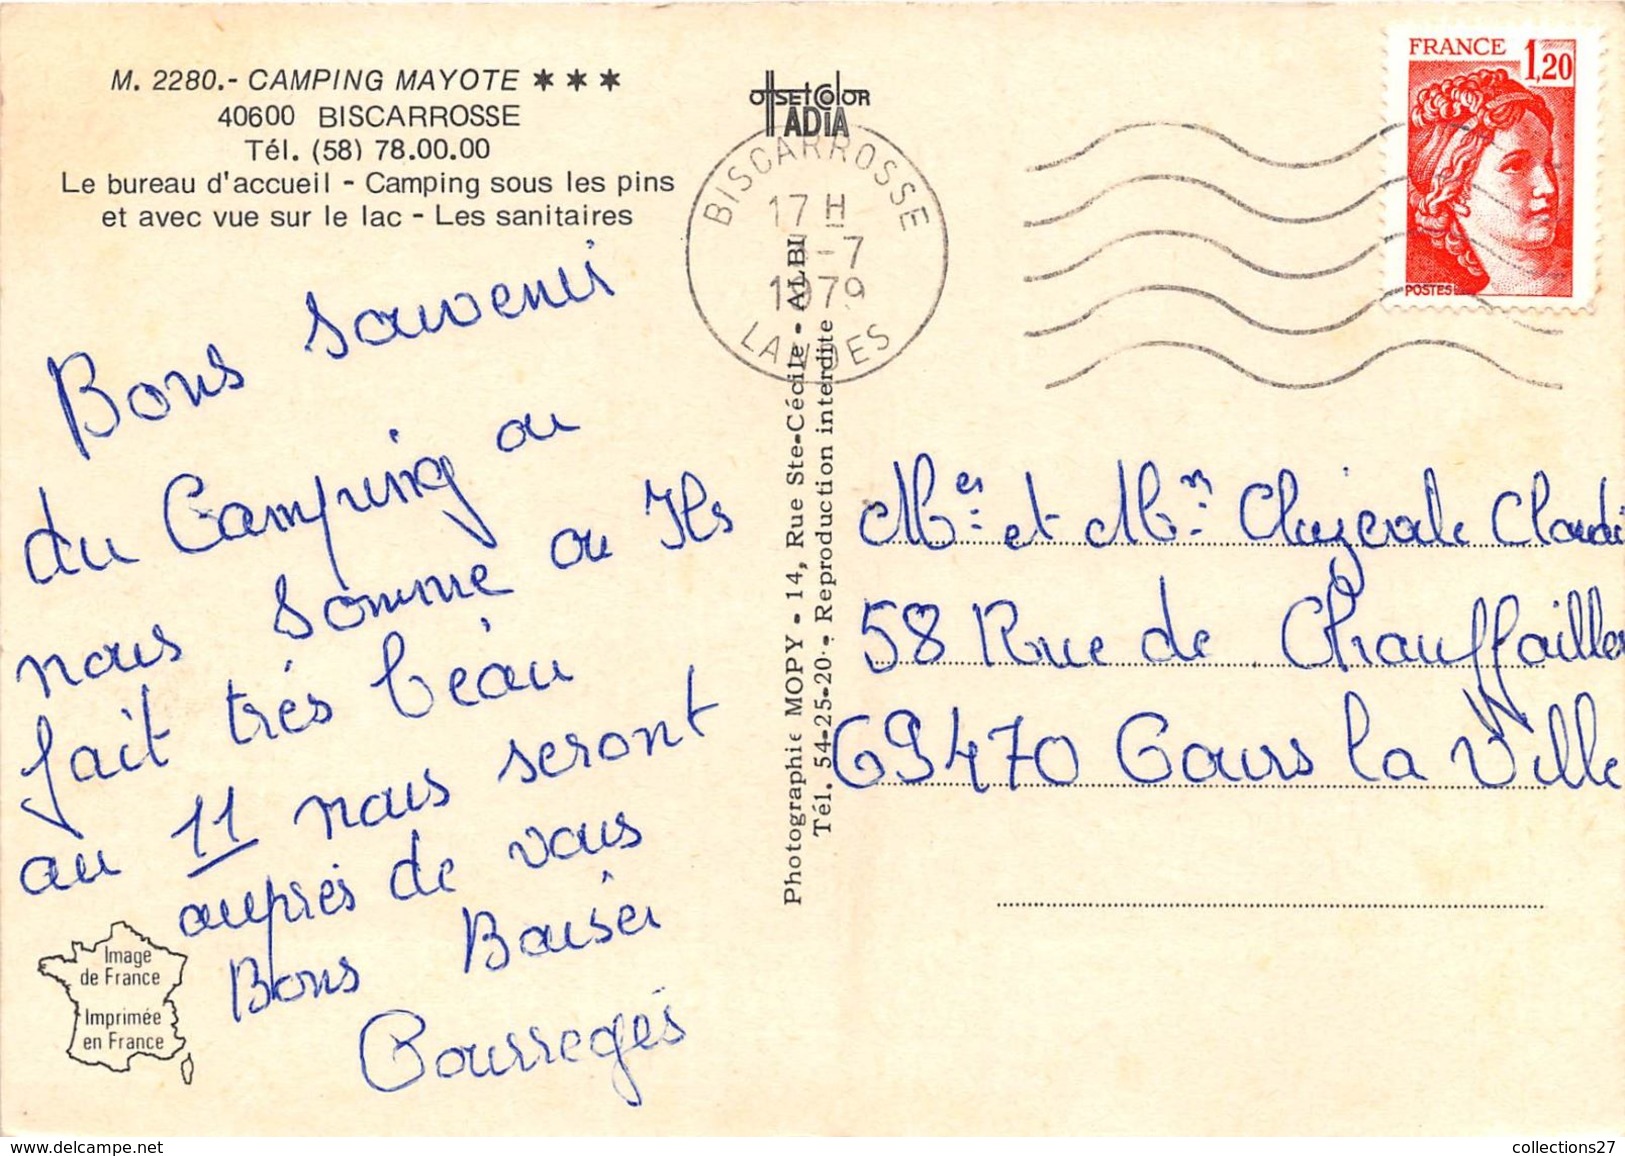 M. 2280.- CAMPING MAYOTE ✶ ✶ ✶
40600 BISCARROSSE
Tél. (58) 78.00.00
Le bureau d'accueil - Camping sous les pins
et avec vue sur le lac - Les sanitaires
Bons souvenir
du Camping ou
nous somme ou Ils
fait très béau
au 11 nous seront
auprés de vous
Bons Baiser
Courreges
Image
de France
Imprimée
en France
OffSET COlOR
TADIA
BISCARROSSE
17 H
-7
1979
LANDES
Photographie MOPY - 14, Rue Ste-Cécile - ALBI
Tél. 54-25-20 - Reproduction interdite
FRANCE 1,20
POSTES
Mer et Mm Claudi
58 Rue de Chauffailles
69470 Cours la Ville
www.delcampe.net
collections27